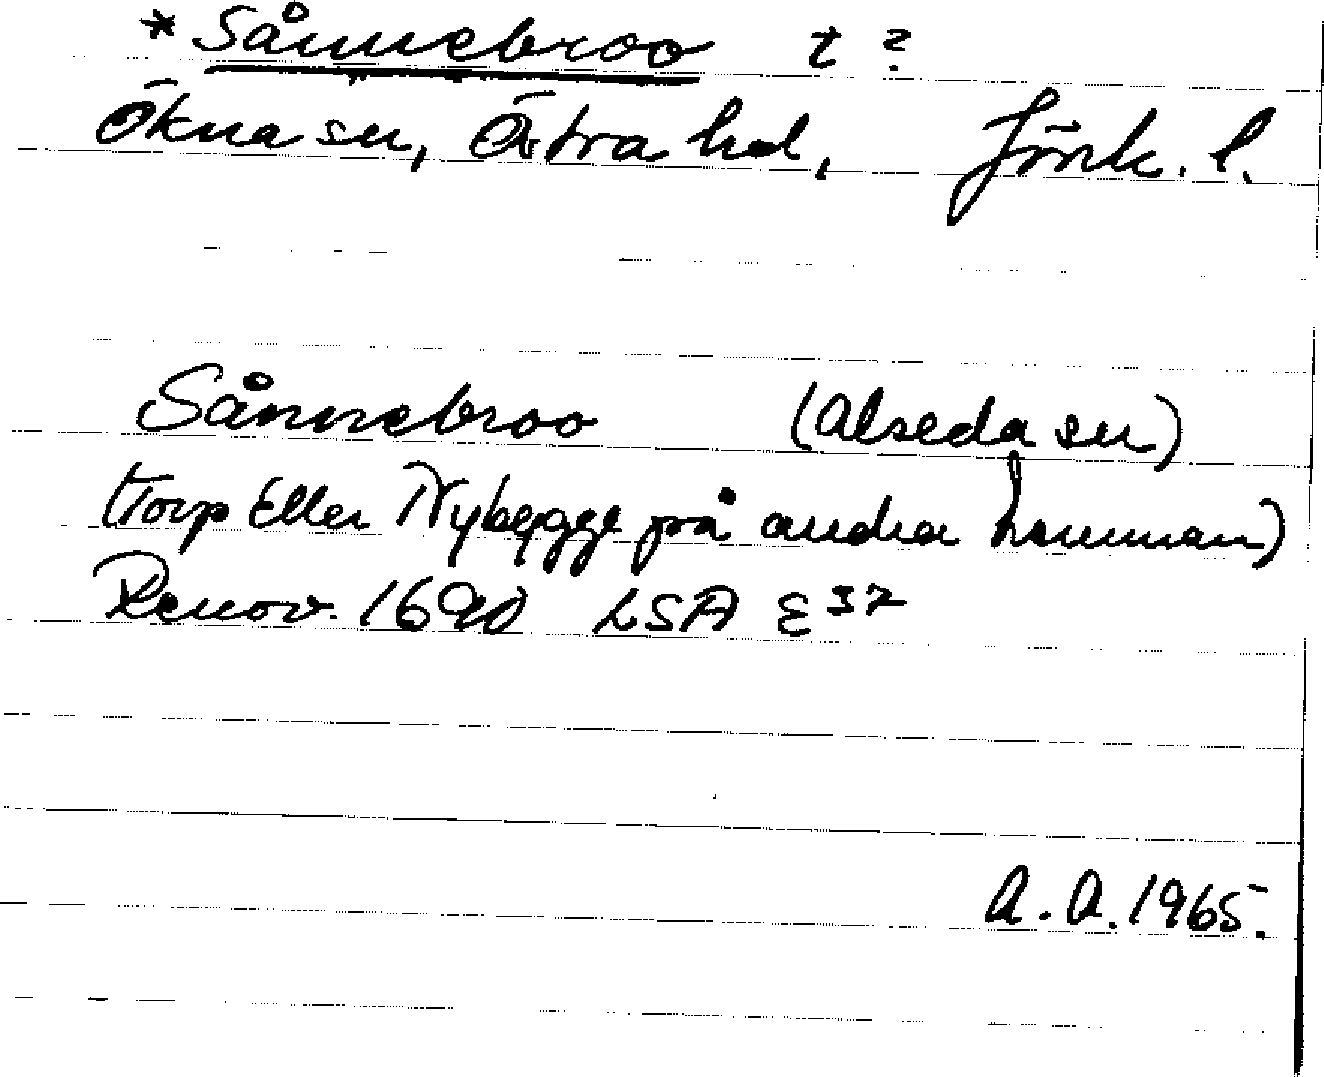 * Sånnebroo t ?
Ökna sn, Östra hd, Jönk. l.
Sånnebroo (Alseda sn)
(Torp Eller Nybygge på andra hamman)
Renov. 1690 LSA E 37
A. A. 1965.